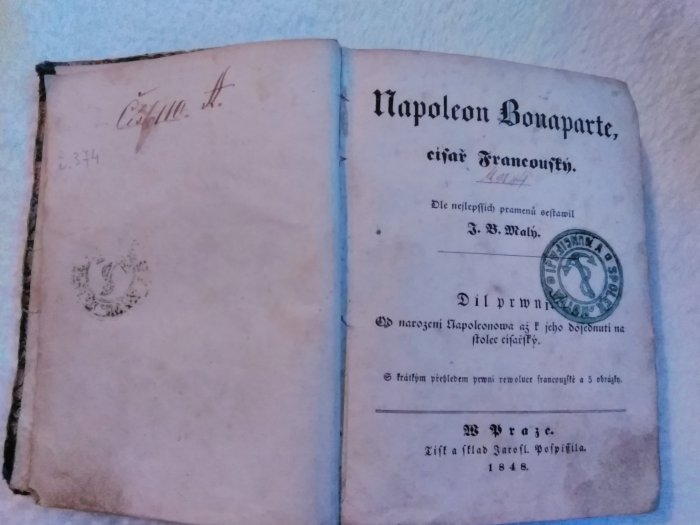 Čís. 110. A.
č. 374
Napoleon Bonaparte,
císař Francouský.
Dle nejlepssich pramenů sestawil
J. B. Malý.
Díl prwnj
Od narozenj Napoleonowa až k jeho dosednutj na
stolec cjsařský.
S krátkým přehledem prwnj rewoluce francouzské a 5 obrázky.
W Praze.
Tisk a sklad Jarosl. Pospíšila.
1848.